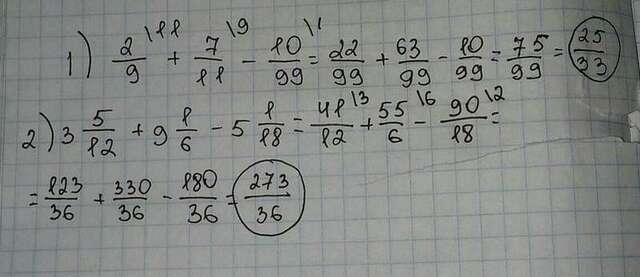 1) 2/9 \11 + 7/11 \9 - 10/99 \1 = 22/99 + 63/99 - 10/99 = 75/99 = 25/33
2) 3 5/12 + 9 1/6 - 5 1/18 = 41/12 \3 + 55/6 \6 - 90/18 \2 =
= 123/36 + 330/36 - 180/36 = 273/36